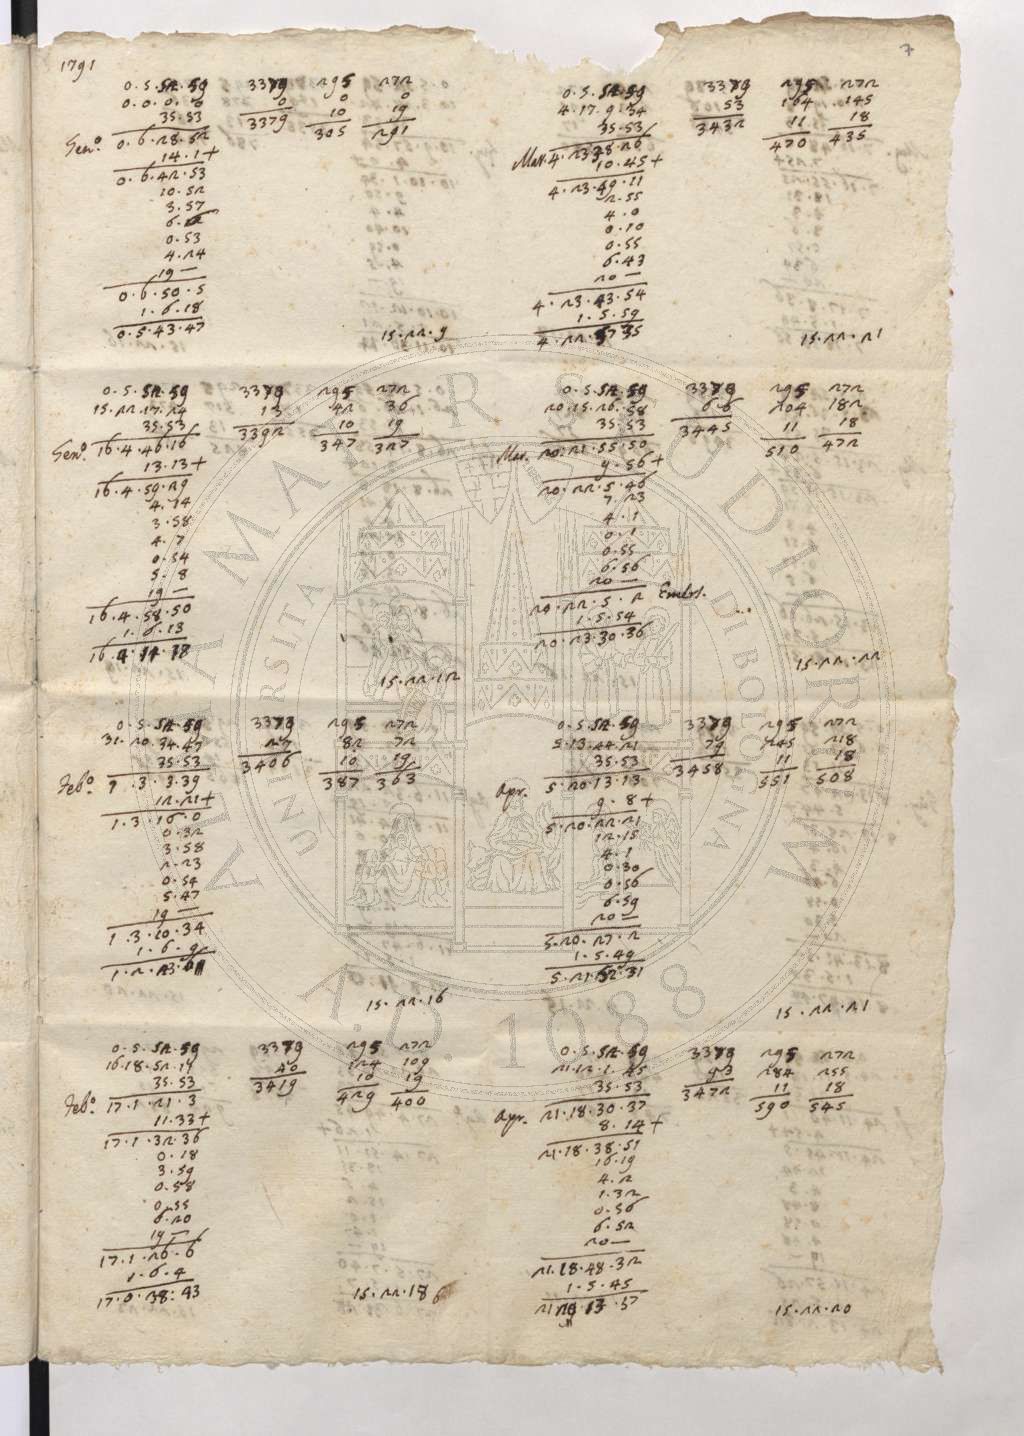 7
1791
0.5.52.59 3379 295 272
0.0.0.0 0 0 0
35.53 10 19
Gen.º 0.6.28.52 3379 305 291
14.1+
0.6.42.53
10.52
3.57
6.12
0.53
4.24
19—
0.6.50.5
1.6.18
0.5.43.47
15.22.9
0.5.52.59 3379 295 272
15.22.17.24 13 42 36
35.53 10 19
Gen.º 16.4.46.16 3392 347 327
13.13+
16.4.59.29
4.14
3.58
4.7
0.54
5.8
19—
16.4.58.50
1.6.13
16.4.14.18
15.22.12
0.5.52.59 3379 295 272
31.20.34.47 27 82 72
35.53 10 19
Feb.º 1.3.3.39 3406 387 363
12.21+
1.3.16.0
0.32
3.58
2.23
0.54
5.47
19—
1.3.10.34
1.6.9
15.22.16
0.5.52.59 3379 295 272
16.18.52.11 40 124 109
35.53 10 19
Feb.º 17.1.21.3 3419 429 400
11.33+
17.1.32.36
0.18
3.59
0.58
0.55
6.20
19—
17.1.26.6
1.6.4
17.0.38.43
15.22.18
0.5.52.59 3379 295 272
4.17.9.34 53 164 145
35.53 11 18
Mar. 4.23.38.26 3432 470 435
10.45+
4.23.49.11
2.55
4.0
0.10
0.55
6.43
20—
4.23.43.54
1.5.59
4.22.57.35
15.22.21
0.5.52.59 3379 295 272
20.15.26.58 66 204 182
35.53 11 18
Mar. 20.21.55.50 3445 510 472
9.56+
20.22.5.46
7.23
4.1
0.1
0.55
6.56
20—
20.22.5.2 Embol.
1.5.54
20.23.30.36
15.22.22
0.5.52.59 3379 295 272
5.13.44.21 79 245 218
35.53 11 18
Apr. 5.20.13.13 3458 551 508
9.8+
5.20.22.21
12.15
4.1
0.30
0.56
6.59
20—
5.20.27.2
1.5.49
5.21.52.31
15.22.21
0.5.52.59 3379 295 272
21.12.1.45 93 284 255
35.53 11 18
Apr. 21.18.30.37 3472 590 545
8.14+
21.18.38.51
16.19
4.2
1.32
0.56
6.52
20—
21.18.48.32
1.5.45
15.22.20